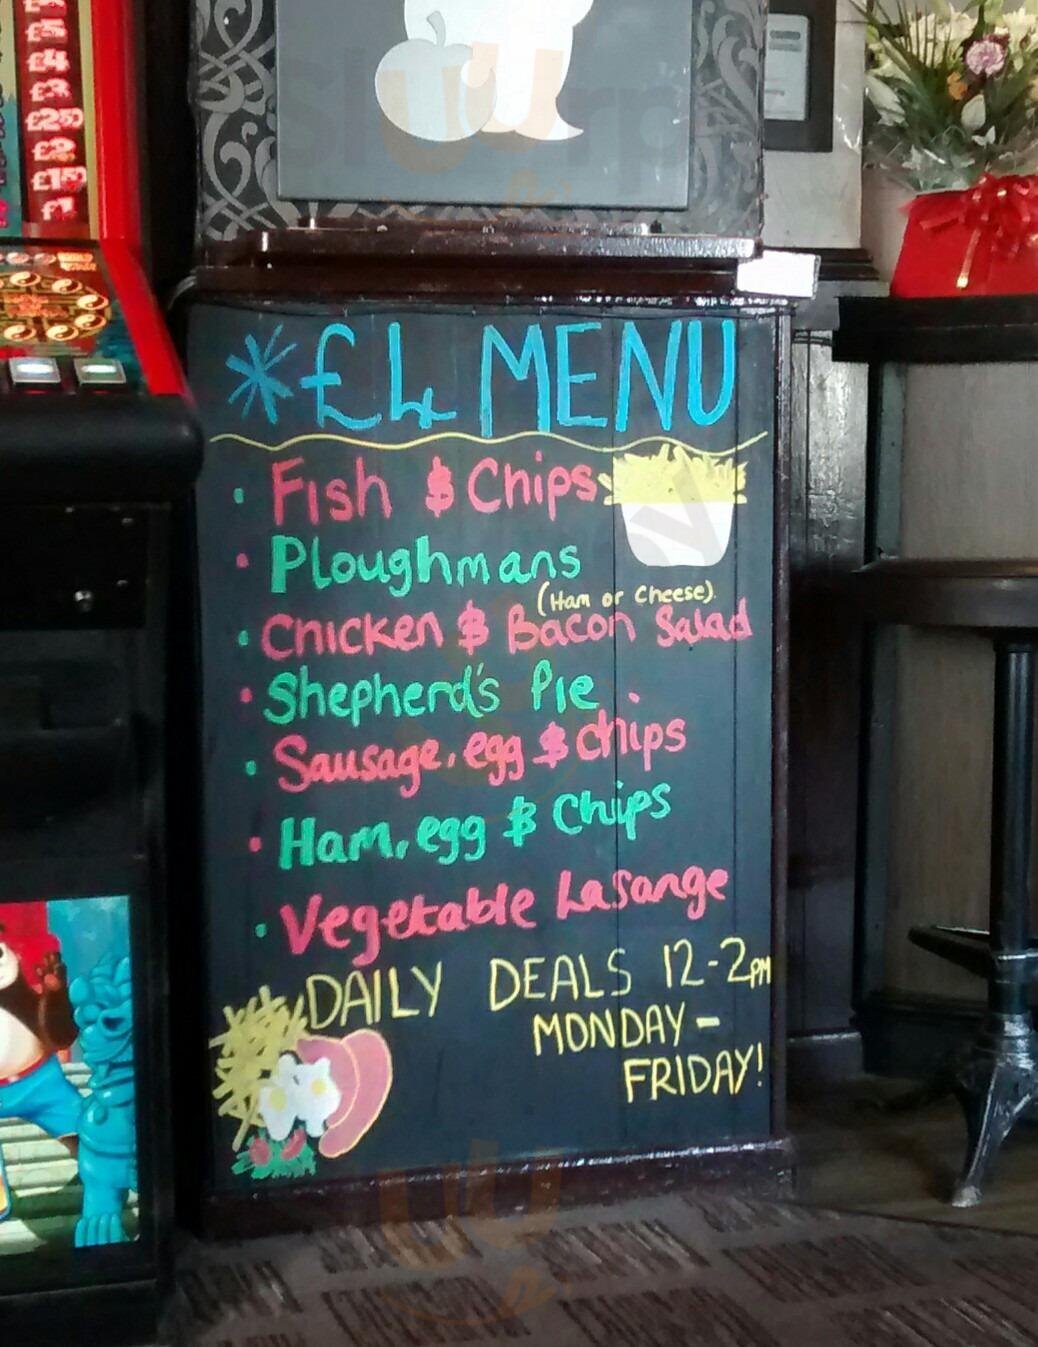 £5
£4
£3
£2.50
£2
£1.50
£1
*£4 MENU
• Fish & Chips
• Ploughmans
(Ham or Cheese)
• Chicken & Bacon Salad
• Shepherd's Pie
• Sausage, egg & chips
• Ham, egg & Chips
• Vegetable Lasange
DAILY DEALS 12-2PM
MONDAY -
FRIDAY!